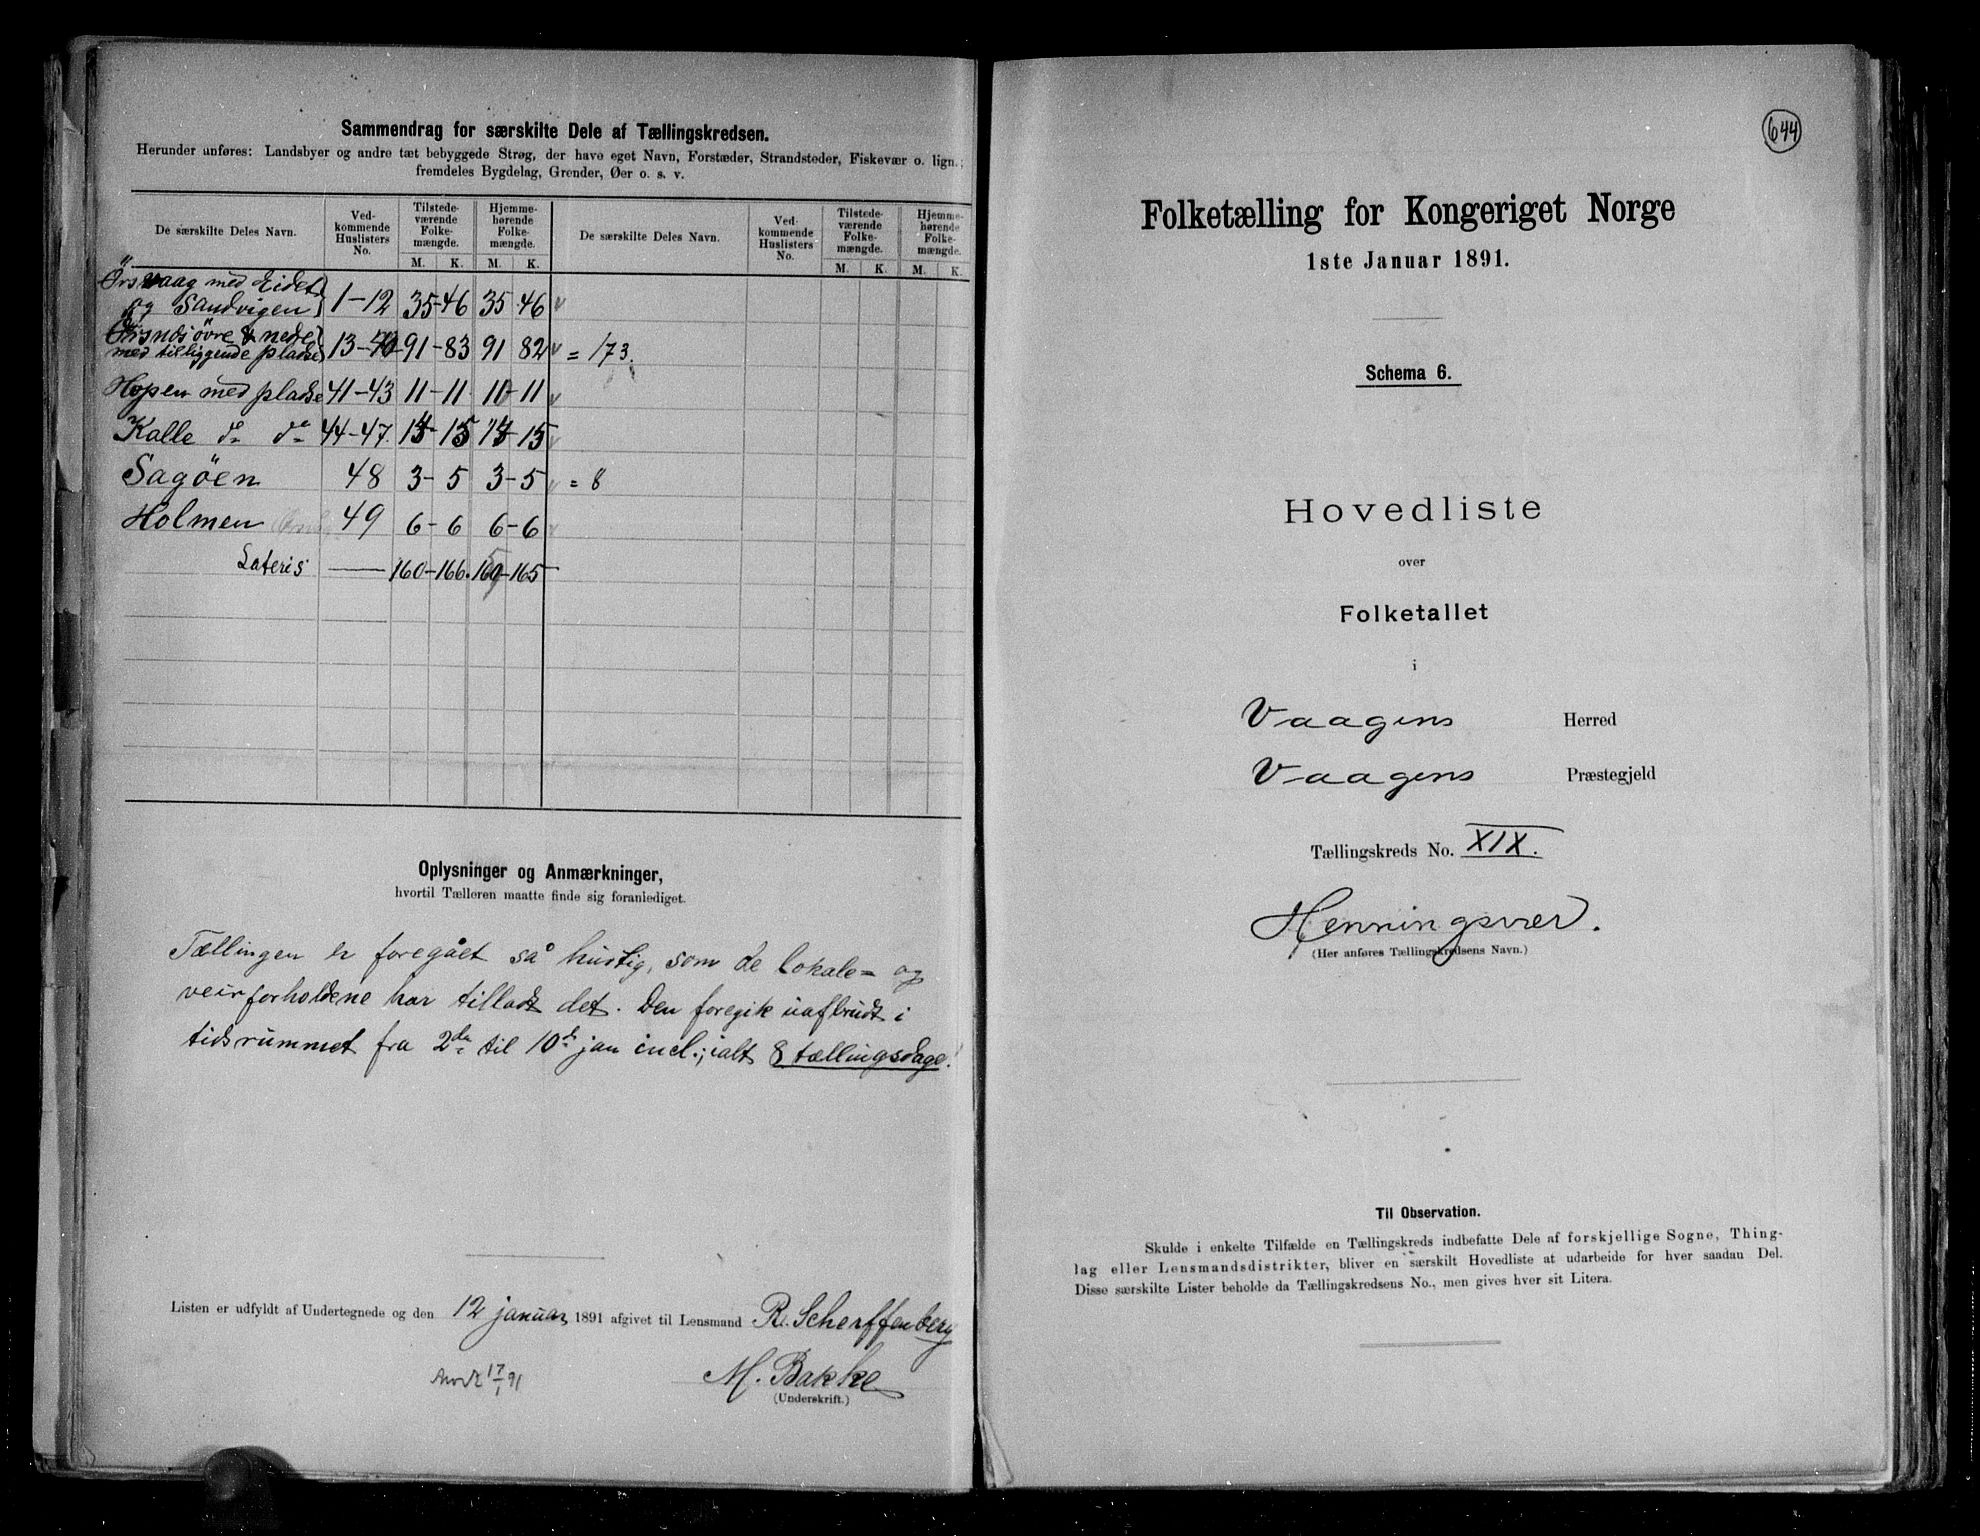 Sammendrag for særskilte Dele af Tællingskredsen.
Herunder anføres: Landsbyer og andre tæt bebyggede Strøg, der have eget Navn, Forstæder, Strandsteder, Fiskevær o. lign.;
fremdeles Bygdelag, Grender, Øer o. s. v.
De særskilte Deles Navn.
Ved-
kommende
Huslisters
No.
Tilstede-
værende
Folke-
mængde.
Hjemme-
hørende
Folke-
mængde.
M. K. M. K.
De særskilte Deles Navn.
Ved-
kommende
Huslisters
No.
Tilstede-
værende
Folke-
mængde.
Hjemme-
hørende
Folke-
mængde.
M. K. M. K.
Örsvaag med Eidet
og Sandvigen 1-12 35-46 35 46
Örsnds övre & nedre
med tilliggende pladse 13-40 91-83 91 82 = 173.
Hopen med pladse 41-43 11-11 10-11
Kalle do do 44-47. 15
Sagöen 48 3-5 3-5 = 8
Holmen 49 6-6 6-6
Lateris — 160-166. 165
Oplysninger og Anmærkninger,
hvortil Tælleren maatte finde sig foranlediget.
Tællingen er foregået så hurtig, som de lokale- og
veirforholdene har tilladt det. Den foregik uafbrudt i
tidsrummet fra 2den til 10de jan incl.; ialt 8 tællingsdage!
Listen er udfyldt af Undertegnede og den 12 januar 1891 afgivet til Lensmand R. Scherffenberg
17/1 91
M. Bakke
(Underskrift.)
644
Folketælling for Kongeriget Norge
1ste Januar 1891.
Schema 6.
Hovedliste
over
Folketallet
i
Vaagens Herred
Vaagens Præstegjeld
Tællingskreds No. XIX.
Henningsvær.
(Her anføres Tællingskredsens Navn.)
Til Observation.
Skulde i enkelte Tilfælde en Tællingskreds indbefatte Dele af forskjellige Sogne, Thing-
lag eller Lensmandsdistrikter, bliver en særskilt Hovedliste at udarbeide for hver saadan Del.
Disse særskilte Lister beholde da Tællingskredsens No., men gives hver sit Litera.